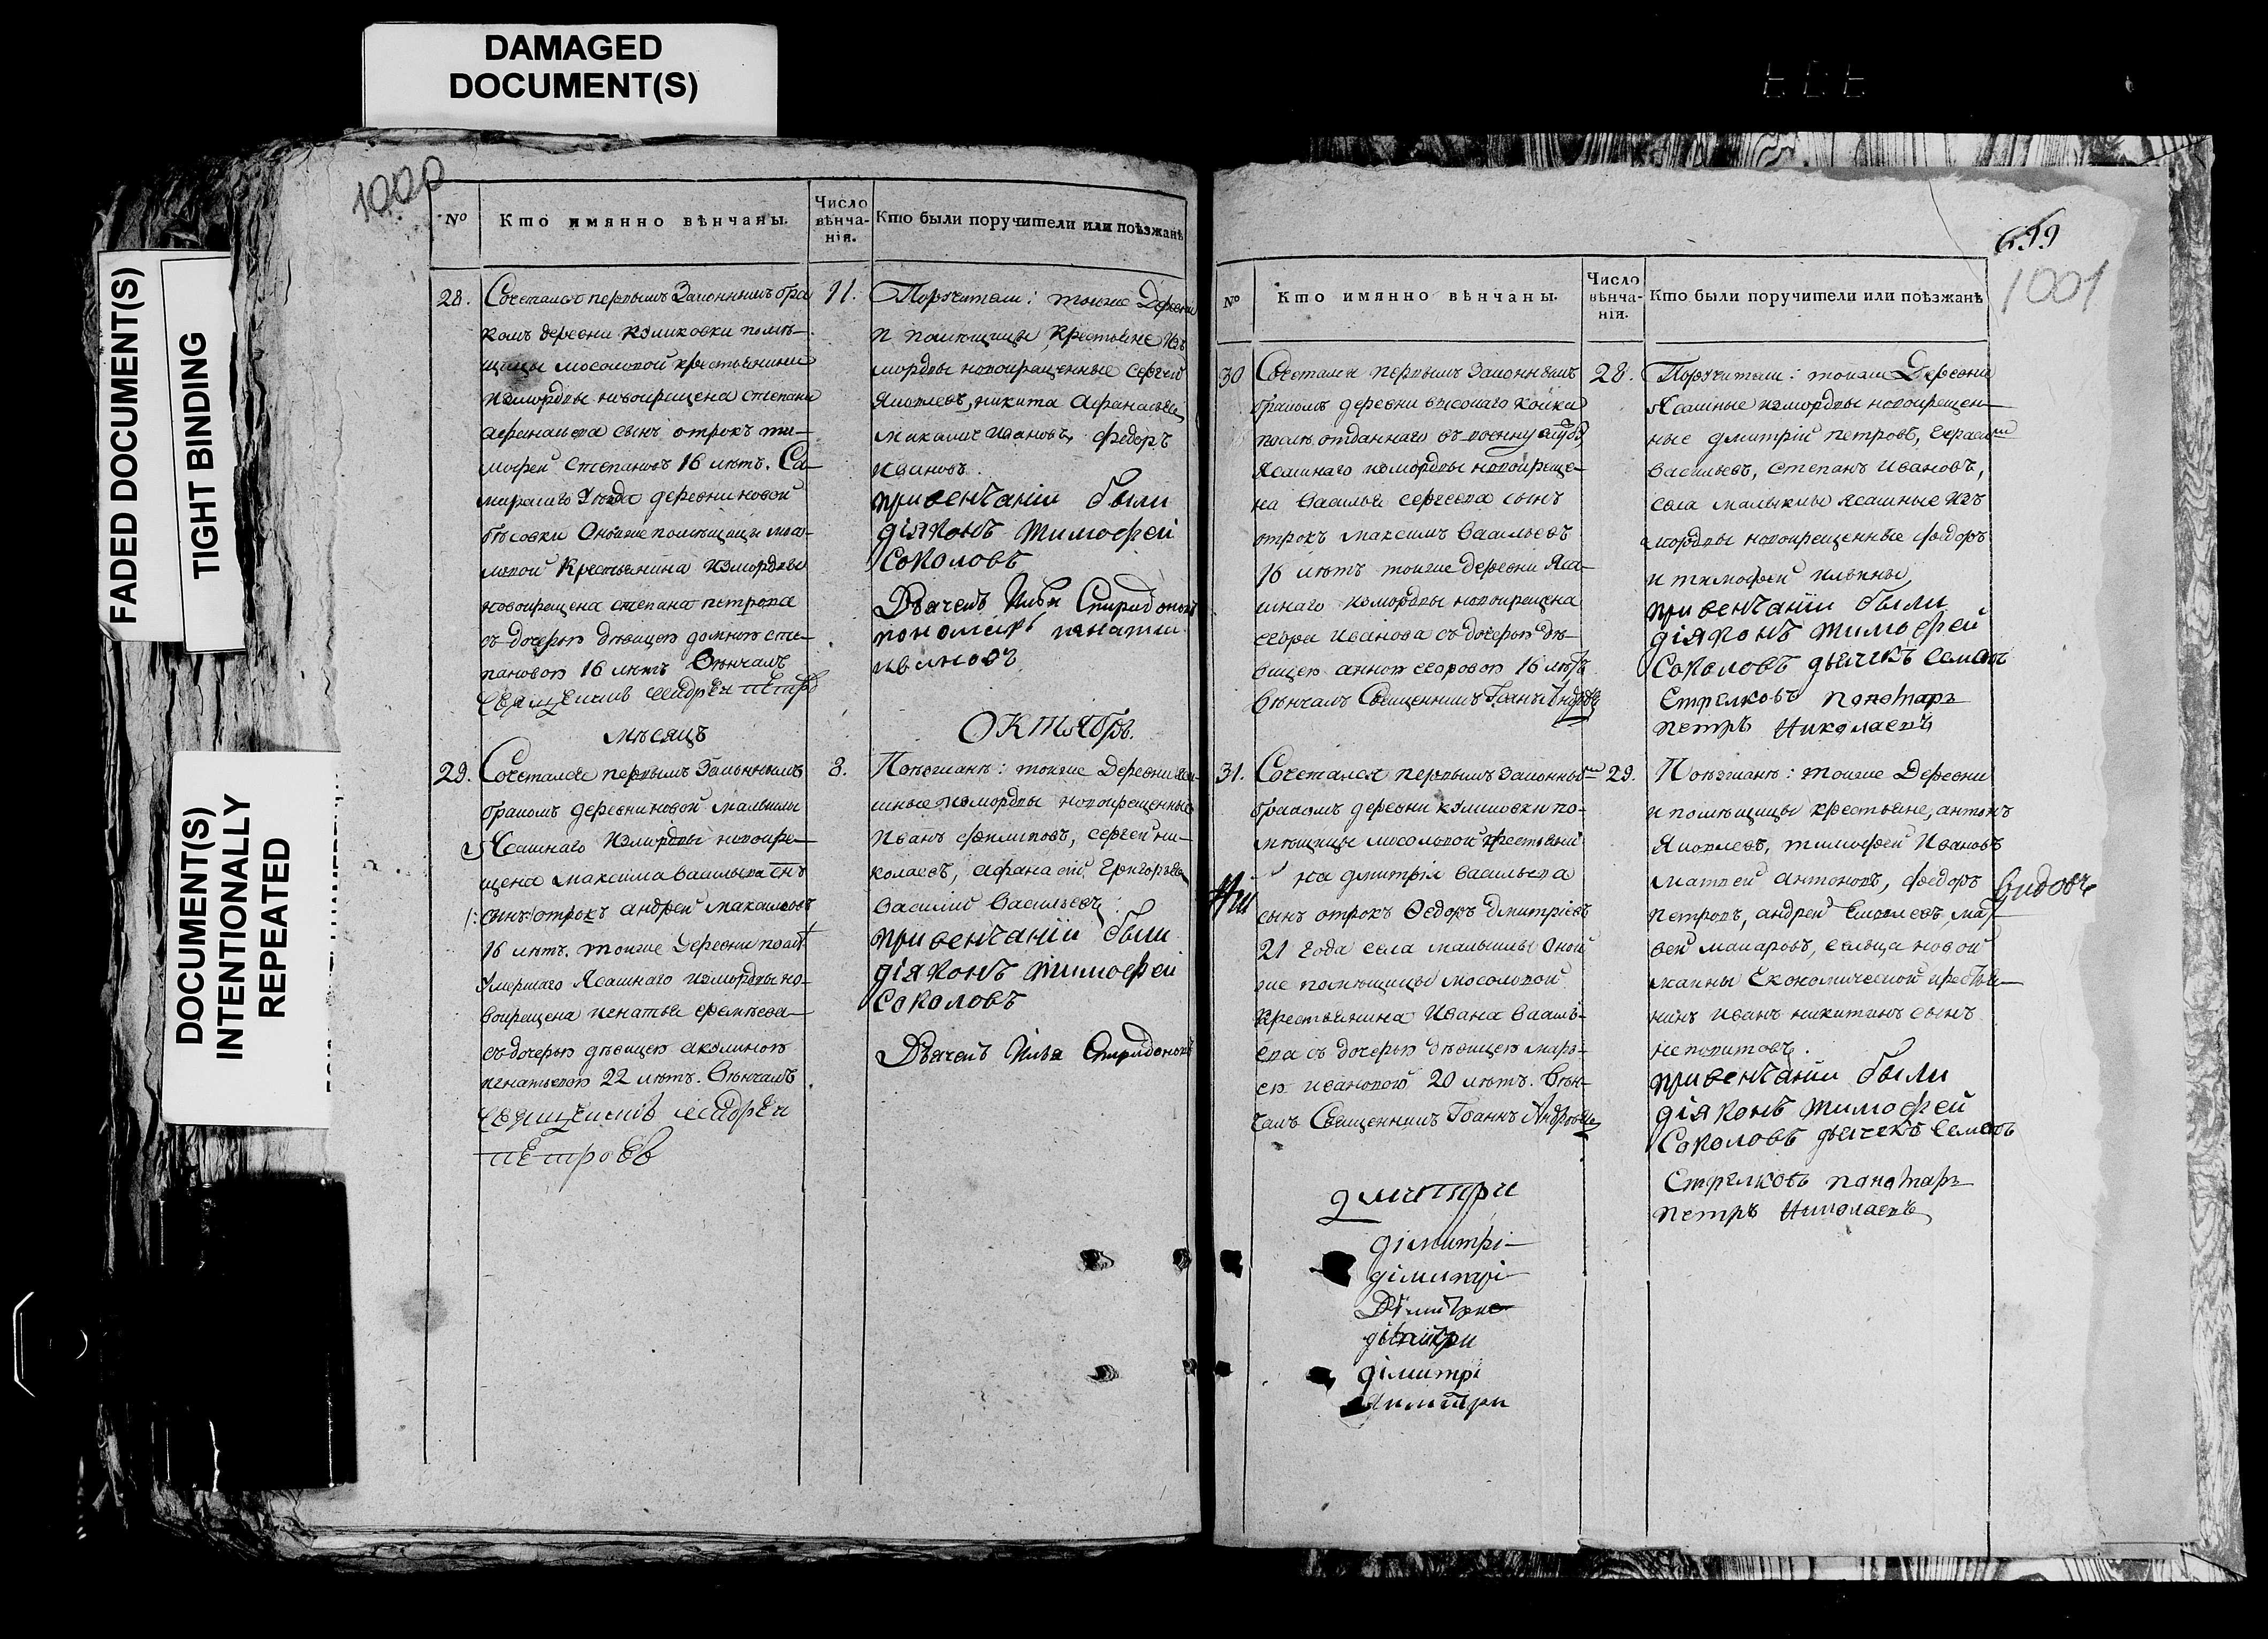 DAMAGED
DOCUMENT(S)
FADED DOCUMENT(S)
TIGHT BINDING
DOCUMENT(S)
INTENTIONALLY
REPEATED
1000
№
Кто имянно вѣнчаны.
Число
вѣнча-
нія.
Кто были поручители или поѣзжанѣ
28.
Сочетался первымъ Законнымъ бра
комъ деревни Колиховки помѣ-
щицы мосоловой крестьянина
измордвы новокрещена степана
афанасьева сынъ отрокъ ти-
мофей Степановъ 16 лѣтъ. Са-
мирскаго Уѣзда деревни новой
бѣсовки Оной же помѣщицы мосо-
ловой Крестьянина измордвы
новокрещена степана петрова
съ дочерью дѣвицею домною сте-
пановою 16 лѣтъ Вѣнчалъ
Священникъ Андрей Петров
11.
Поручители: тоиже Деревни
и помѣщицы крестьяне изъ
мордвы новокрещенные сергей
Яковлевъ, никита Афанасьев
михаило Ивановъ, федоръ
Ивановъ.
привенчании были
діяконъ тимофей
Соколовъ
Дьячекъ Илья Спиридоновъ
пономарь игнатий
ивановъ
мѣсяцъ
октября.
29.
Сочетался первымъ Законнымъ
бракомъ деревни новой малыклы
Ясашнаго Измордвы новокре-
щена максима васильева снъ
сынъ отрокъ андрей максимовъ
16 лѣтъ. тоиже Деревни пом
Умершаго Ясашнаго измордвы но-
вокрещена игнатья еремѣева
съ дочерью дѣвицею акулиною
игнатьевою 22 лѣтъ. Вѣнчалъ
Священникъ Андрей
Петровъ
8.
Поѣзжанѣ: тоиже Деревни яса-
шные измордвы новокрещенные
Иванъ филиповъ, сергей ни-
колаевъ, афанасий Григорьевъ
Василий Васильевъ
привенчании были
діяконъ тимофей
Соколовъ
Дьячекъ Илья Спиридоновъ
699
1001
№
Кто имянно вѣнчаны.
Число
вѣнча-
нія.
Кто были поручители или поѣзжанѣ
30
Сочетался первымъ Законнымъ
бракомъ деревни высокаго колка
отданнаго въ военну службу
Ясашнаго измордвы новокреще-
на Василья сергеева сынъ
отрокъ максимъ васильевъ
16 лѣтъ тоиже деревни Яса-
шнаго измордвы новокрещена
егора Иванова съ дочерью дѣ-
вицею анною егоровою 16 лѣтъ
Вѣнчалъ Священникъ Іоаннъ Андреевъ
28.
Поручители: тоиже Деревни
Ясашные измордвы новокрещен-
ные дмитрій петровъ, герасим
васильевъ, степанъ Ивановъ,
села малыклы ясашные изъ
мордвы новокрещенные федоръ
и тимофей ильины,
привенчании были
діяконъ тимофей
Соколовъ дьячекъ Семенъ
Стрелковъ понамарь
петръ Николаевъ
31.
Сочетался первымъ Законнымъ
бракомъ деревни колиховки по-
мѣщицы мосоловой крестьяни
на дмитрія васильева
сынъ отрокъ Ѳедоръ Дмитріевъ
21 года села малыклы оной
же помѣщицы мосоловой
крестьянина Ивана василь-
ева съ дочерью дѣвицею марь-
ею ивановою 20 лѣтъ. Вѣн-
чалъ Священникъ Іоаннъ Андреевъ
29.
Поѣзжанѣ: тоиже Деревни
и помѣщицы крестьяне, антонъ
Яковлевъ, тимофей Ивановъ
матвей антоновъ, федоръ
петровъ, андрей Яковлевъ, мат
вей макаровъ, сельца новой
Економической крестья-
нинъ иванъ никитинъ сынъ
привенчании были
діяконъ тимофей
Соколовъ дьячекъ Семенъ
Стрелковъ понамарь
петръ Николаевъ
дмитри
дімитрі
дімитрі
Дімитрие
дімитри
дімитрі
димитри